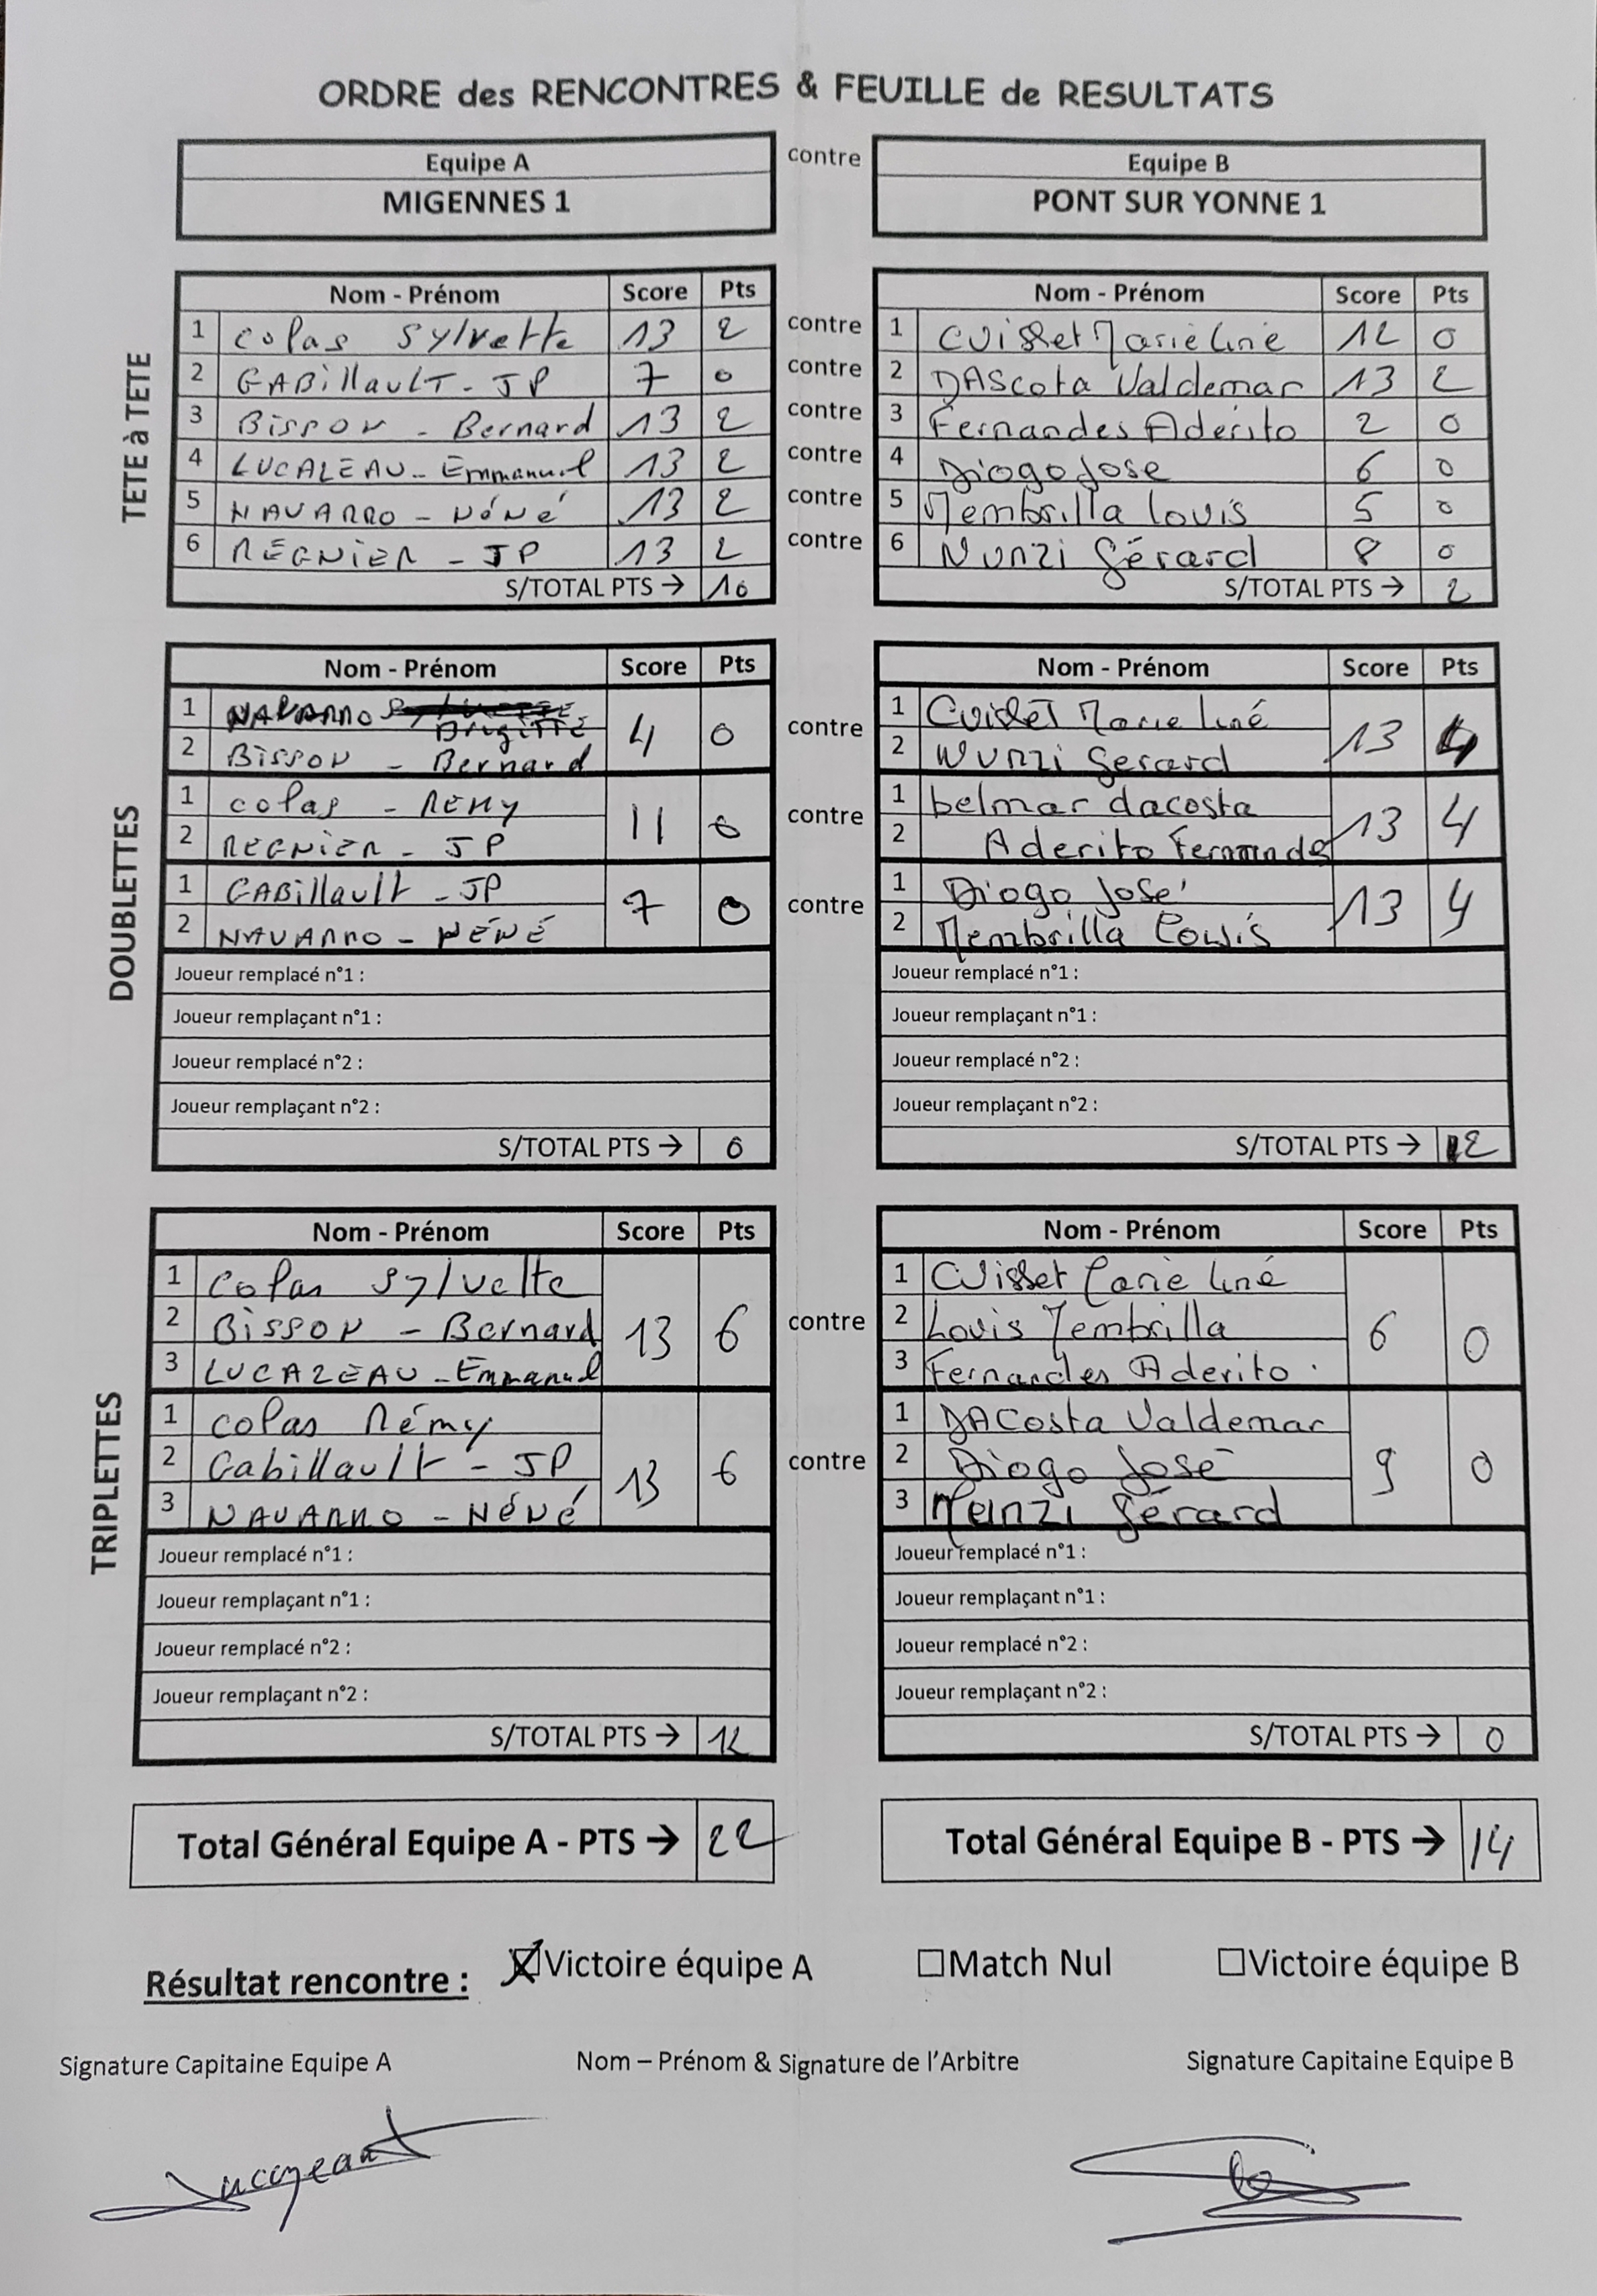 ORDRE des RENCONTRES & FEUILLE de RESULTATS
Equipe A contre Equipe B
MIGENNES 1 PONT SUR YONNE 1
TETE à TETE
Nom - Prénom Score Pts Nom - Prénom Score Pts
1 Colas Sylvette 13 2 contre 1 Cuisset Marie Line 12 0
2 GABillaulT - JP 7 0 contre 2 DAScota Valdemar 13 2
3 Bisson - Bernard 13 2 contre 3 Fernandes Aderito 2 0
4 LUCALEAU - Emmanuel 13 2 contre 4 Diogo Jose 6 0
5 NAVARRO - Néné 13 2 contre 5 Membrilla Louis 5 0
6 REGNIER - JP 13 2 contre 6 Nunzi Gérard 8 0
S/TOTAL PTS → 10 S/TOTAL PTS → 2
DOUBLETTES
Nom - Prénom Score Pts Nom - Prénom Score Pts
1 NAVARRO Brigitte 4 0 contre 1 Cuisset Marie Liné 13 4
2 Bisson - Bernard 2 Nunzi Gerard
1 Colas - REMY 11 0 contre 1 belmar dacosta 13 4
2 REGNIER - JP 2 Aderito Fernandes
1 GABillault - JP 7 0 contre 1 Diogo José 13 4
2 NAVARRO - NÉNÉ 2 Membrilla Louis
Joueur remplacé n°1 : Joueur remplacé n°1 :
Joueur remplaçant n°1 : Joueur remplaçant n°1 :
Joueur remplacé n°2 : Joueur remplacé n°2 :
Joueur remplaçant n°2 : Joueur remplaçant n°2 :
S/TOTAL PTS → 0 S/TOTAL PTS → 12
TRIPLETTES
Nom - Prénom Score Pts Nom - Prénom Score Pts
1 Colas Sylvette 13 6 contre 1 Cuisset Marie Liné 6 0
2 Bisson - Bernard 2 Louis Membrilla
3 LUCAZEAU - Emmanuel 3 Fernandes Aderito
1 Colas Rémy 13 6 contre 1 DACosta Valdemar 9 0
2 Gabillault - JP 2 Diogo José
3 NAVARRO - NéNé 3 Nunzi Gérard
Joueur remplacé n°1 : Joueur remplacé n°1 :
Joueur remplaçant n°1 : Joueur remplaçant n°1 :
Joueur remplacé n°2 : Joueur remplacé n°2 :
Joueur remplaçant n°2 : Joueur remplaçant n°2 :
S/TOTAL PTS → 12 S/TOTAL PTS → 0
Total Général Equipe A - PTS → 22 Total Général Equipe B - PTS → 14
Résultat rencontre : ☒Victoire équipe A ☐Match Nul ☐Victoire équipe B
Signature Capitaine Equipe A Nom – Prénom & Signature de l'Arbitre Signature Capitaine Equipe B